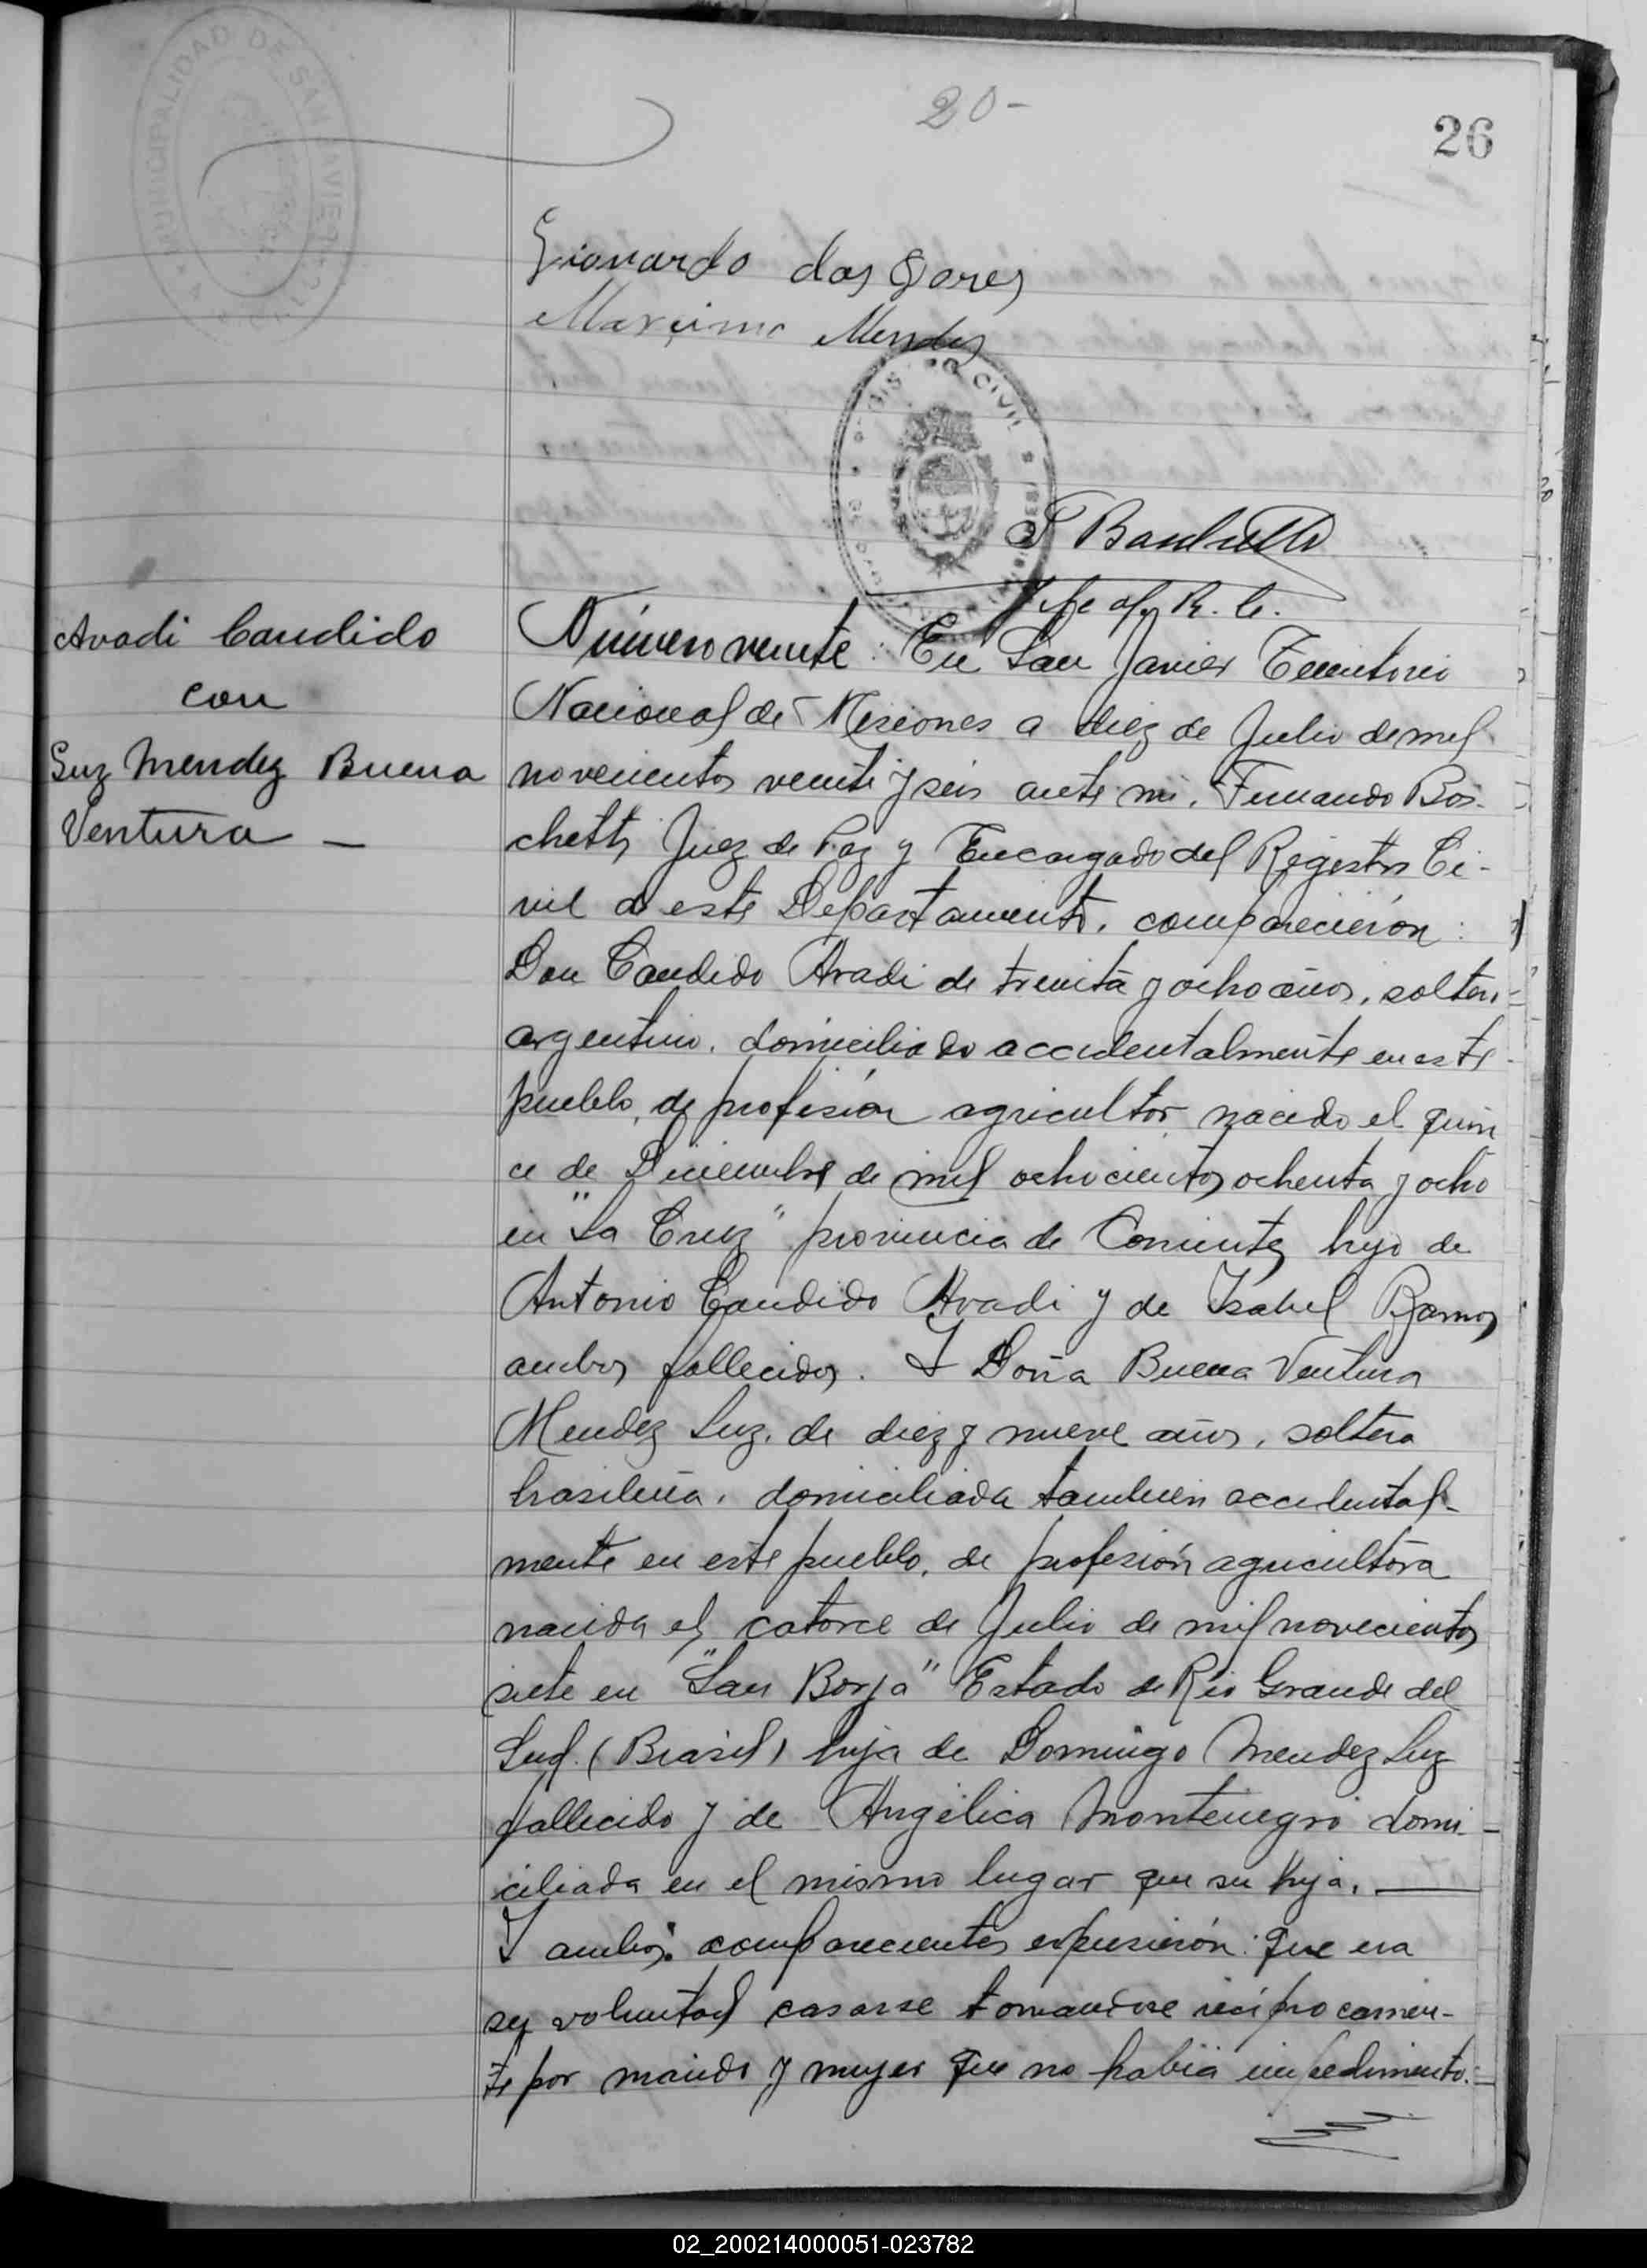 20-
26
MUNICIPALIDAD DE SAN JAVIER
dos
Maximo Mendez
REGISTRO CIVIL
Jefe of R. C.
Avadi Candido
con
Luz Mendez Buena
Ventura —
Número veinte: En San Javier Territorio
Nacional de Misiones a diez de Julio de mil
novecientos veinte y seis ante mi, Fernando Bos-
chetti Juez de Paz y Encargado del Registro Ci-
vil de este Departamento, comparecieron:
Don Candido Avadi de treinta y ocho años, soltero
argentino, domiciliado accidentalmente en este
pueblo, de profesión agricultor nacido el quin
ce de Diciembre de mil ochocientos ochenta y ocho
en "La Cruz" provincia de Corrientes hijo de
Antonio Candido Avadi y de Isabel Ramos
ambos fallecidos. I Doña Buena Ventura
Mendez Luz, de diez y nueve años, soltera
brasileña, domiciliada tambien accidental-
mente en este pueblo, de profesión agricultora
nacida el catorce de Julio de mil novecientos
siete en "San Borja" Estado de Rio Grande del
Sud (Brasil) hija de Domingo Mendez Luz
fallecido y de Angélica Montenegro domi-
ciliada en el mismo lugar que su hija. —
I ambos comparecientes expusieron: Que era
su voluntad casarse tomandose reciprocamen-
te por marido y mujer que no habia impedimento.
02_200214000051-023782